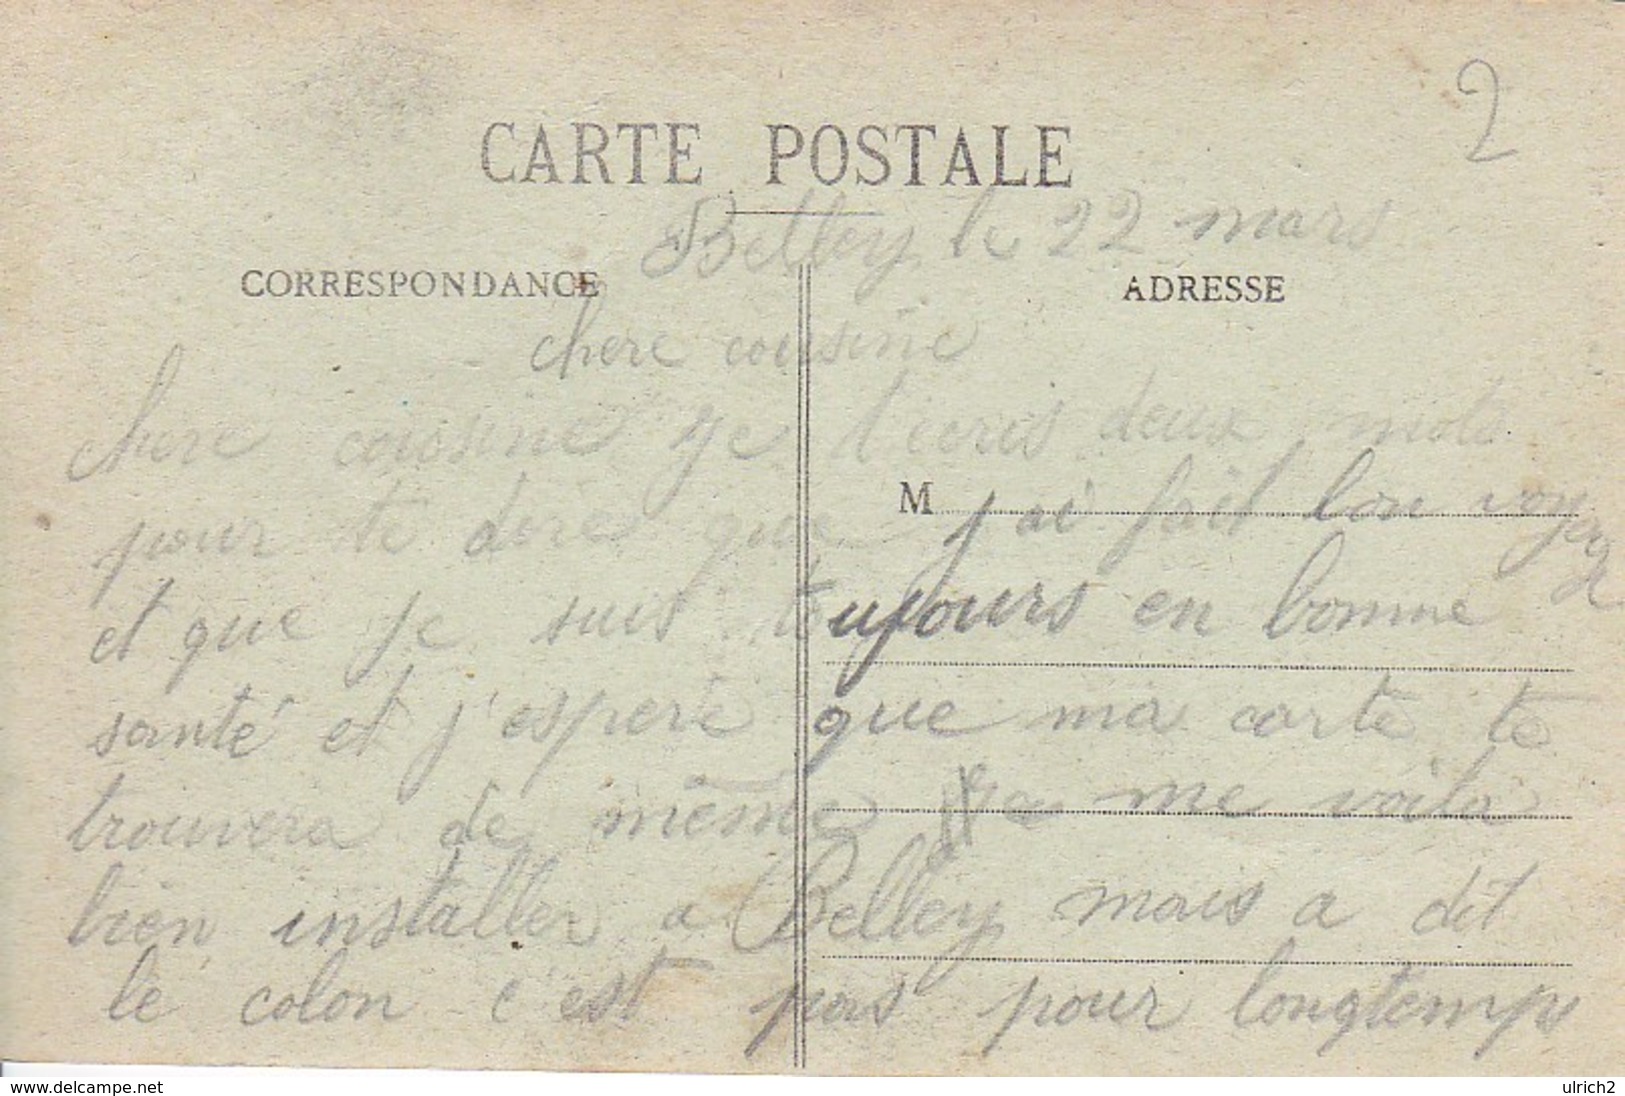 2
CARTE POSTALE
Belley le 22 mars
CORRESPONDANCE ADRESSE
chere cousine
chere cousine je t'ecris deux mots
pour te dire que j'ai fait bon voyage
M
et que je suis toujours en bonne
santé et j'espere que ma carte te
trouvera de même me voila
bien installer a Belley mais a dit
le colon c'est pas pour longtemps
www.delcampe.net
ulrich2